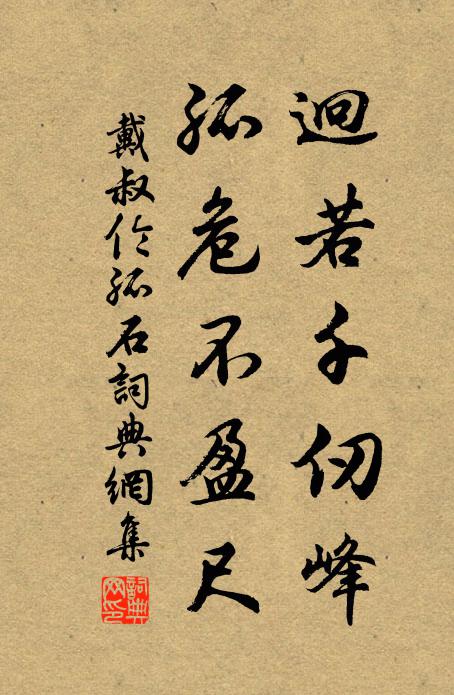 迥若千仞峰
孤危不盈尺
戴叔伦孤石詞典網集
詞典网印